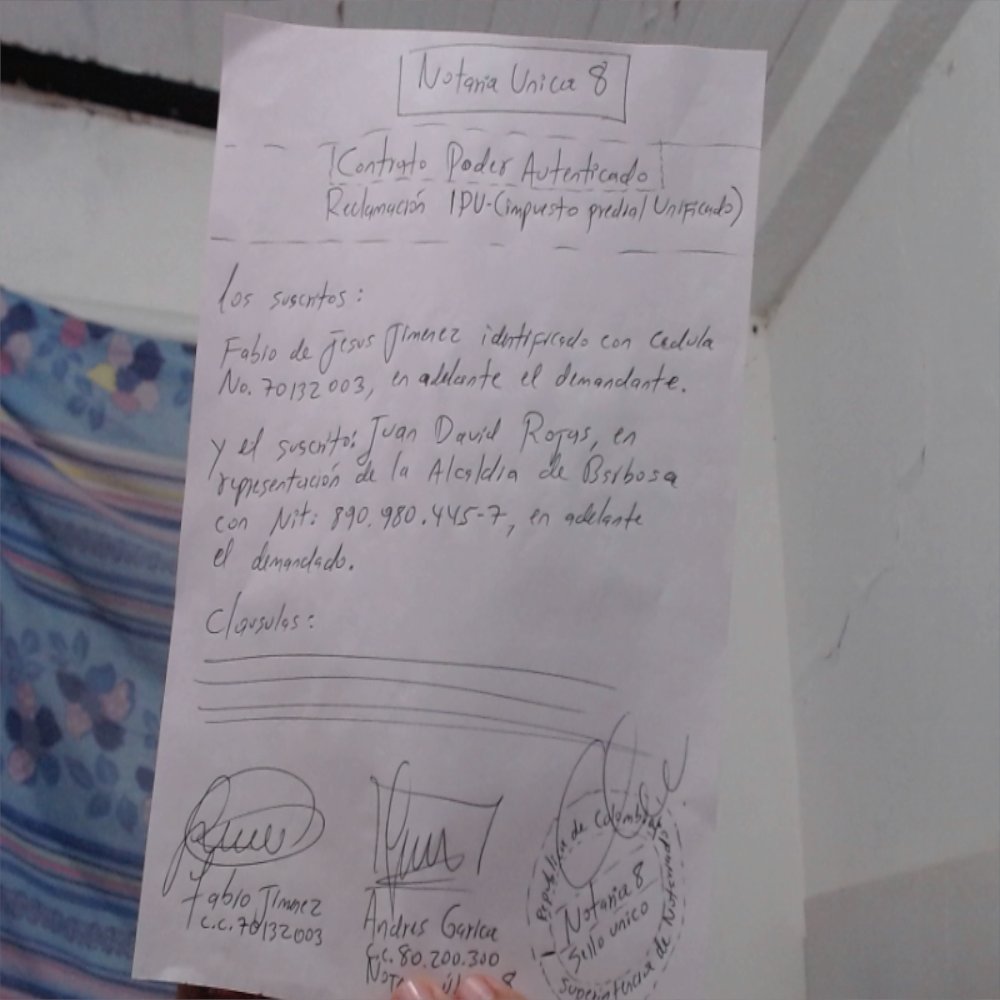 Notaria Unica 8
Contrato Poder Autenticado
Reclamación IPU-(impuesto predial Unificado)
los suscritos:
Fabio de Jesus Jimenez identificado con cedula
No. 70132003, en adelante el demandante.
y el suscrito: Juan David Rojas, en
representación de la Alcaldia de Barbosa
con Nit: 890.980.445-7, en adelante
el demandado.
Clausulas:
Fabio Jimenez
C.C. 70132003
Andres Garica
C.c. 80.200.300
8
Republica de Colombia
Notaria 8
Sello unico
Superintencia de Notariado